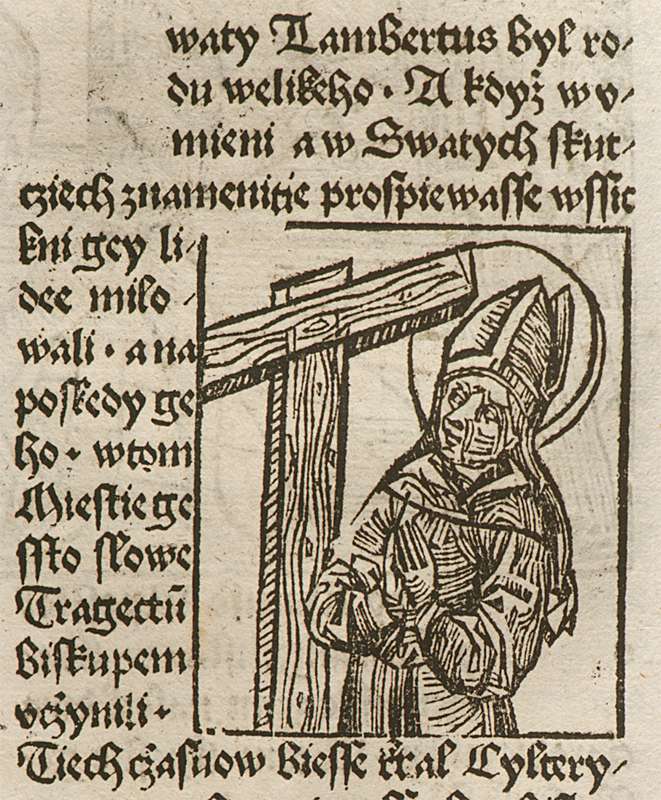 waty Lambertus byl ro⸗
du welikeho · A když w v⸗
mieni a w Swatych skut⸗
cziech znamenitie prospiewasse wssic
kni gey li⸗
dee milo⸗
wali · a na
poskedy ge
ho · w tom
Miestie ge
ssto slowe
Tragectū
Biskupem
vczynili ·
Tiech cžasuow biesse kral Cyltery⸗